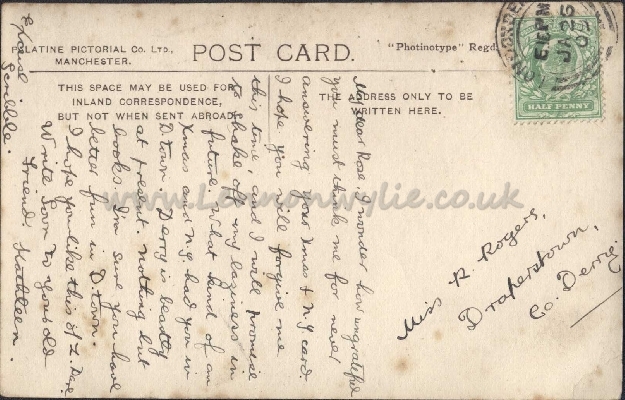 PALATINE PICTORIAL CO. LTD.,
MANCHESTER.
POST CARD.
"Photinotype" Regd.
THIS SPACE MAY BE USED FOR
INLAND CORRESPONDENCE,
BUT NOT WHEN SENT ABROAD.
THE ADDRESS ONLY TO BE
WRITTEN HERE.
HALF PENNY
6 15 PM
JA 25
09
My dear Rose, I wonder how ungrateful
you must think me for never
answering your Xmas & N.Y card.
I hope you will forgive me
this time, and I will promise
to shake off my laziness in
future. What kind of an
Xmas and N.Y had you in
D.town. Derry is beastly
at present. nothing but
books. I'm sure you have
better fun in D.town.
I hope you like this of L. Dere
Write soon to your old
friend. Kathleen.
Excuse
Scribble.
Miss R. Rogers,
Draperstown,
Co. Derry.
www.Lennonwylie.co.uk